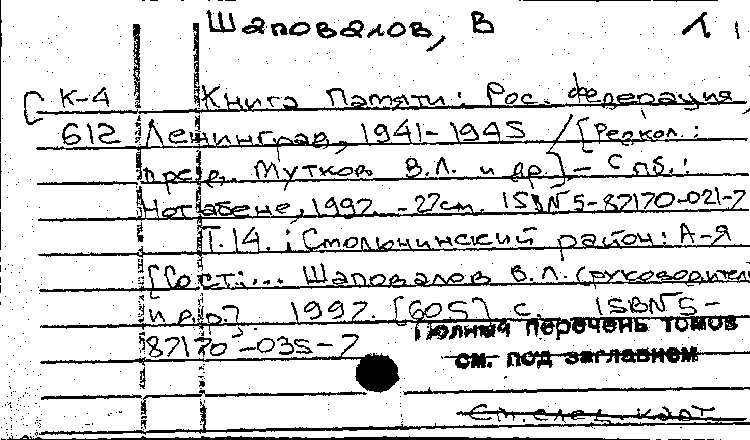 Шаповалов, В Л
К-4 Книга Памяти: Рос. Федерация,
612 Ленинград, 1941-1945 / [Редкол.:
пред. Мутков В.Л. и др.] - СПб.:
Нотабене, 1997. - 27см. ISBN 5-87170-021-7
Т.14.: Смольнинский район: А-Я
[Сост.:... Шаповалов В.Л. (руководитель)
и др.] 1997. [605] с. ISBN 5-
87170-035-7
Полный перечень томов
см. под заглавием
См. след. карт.